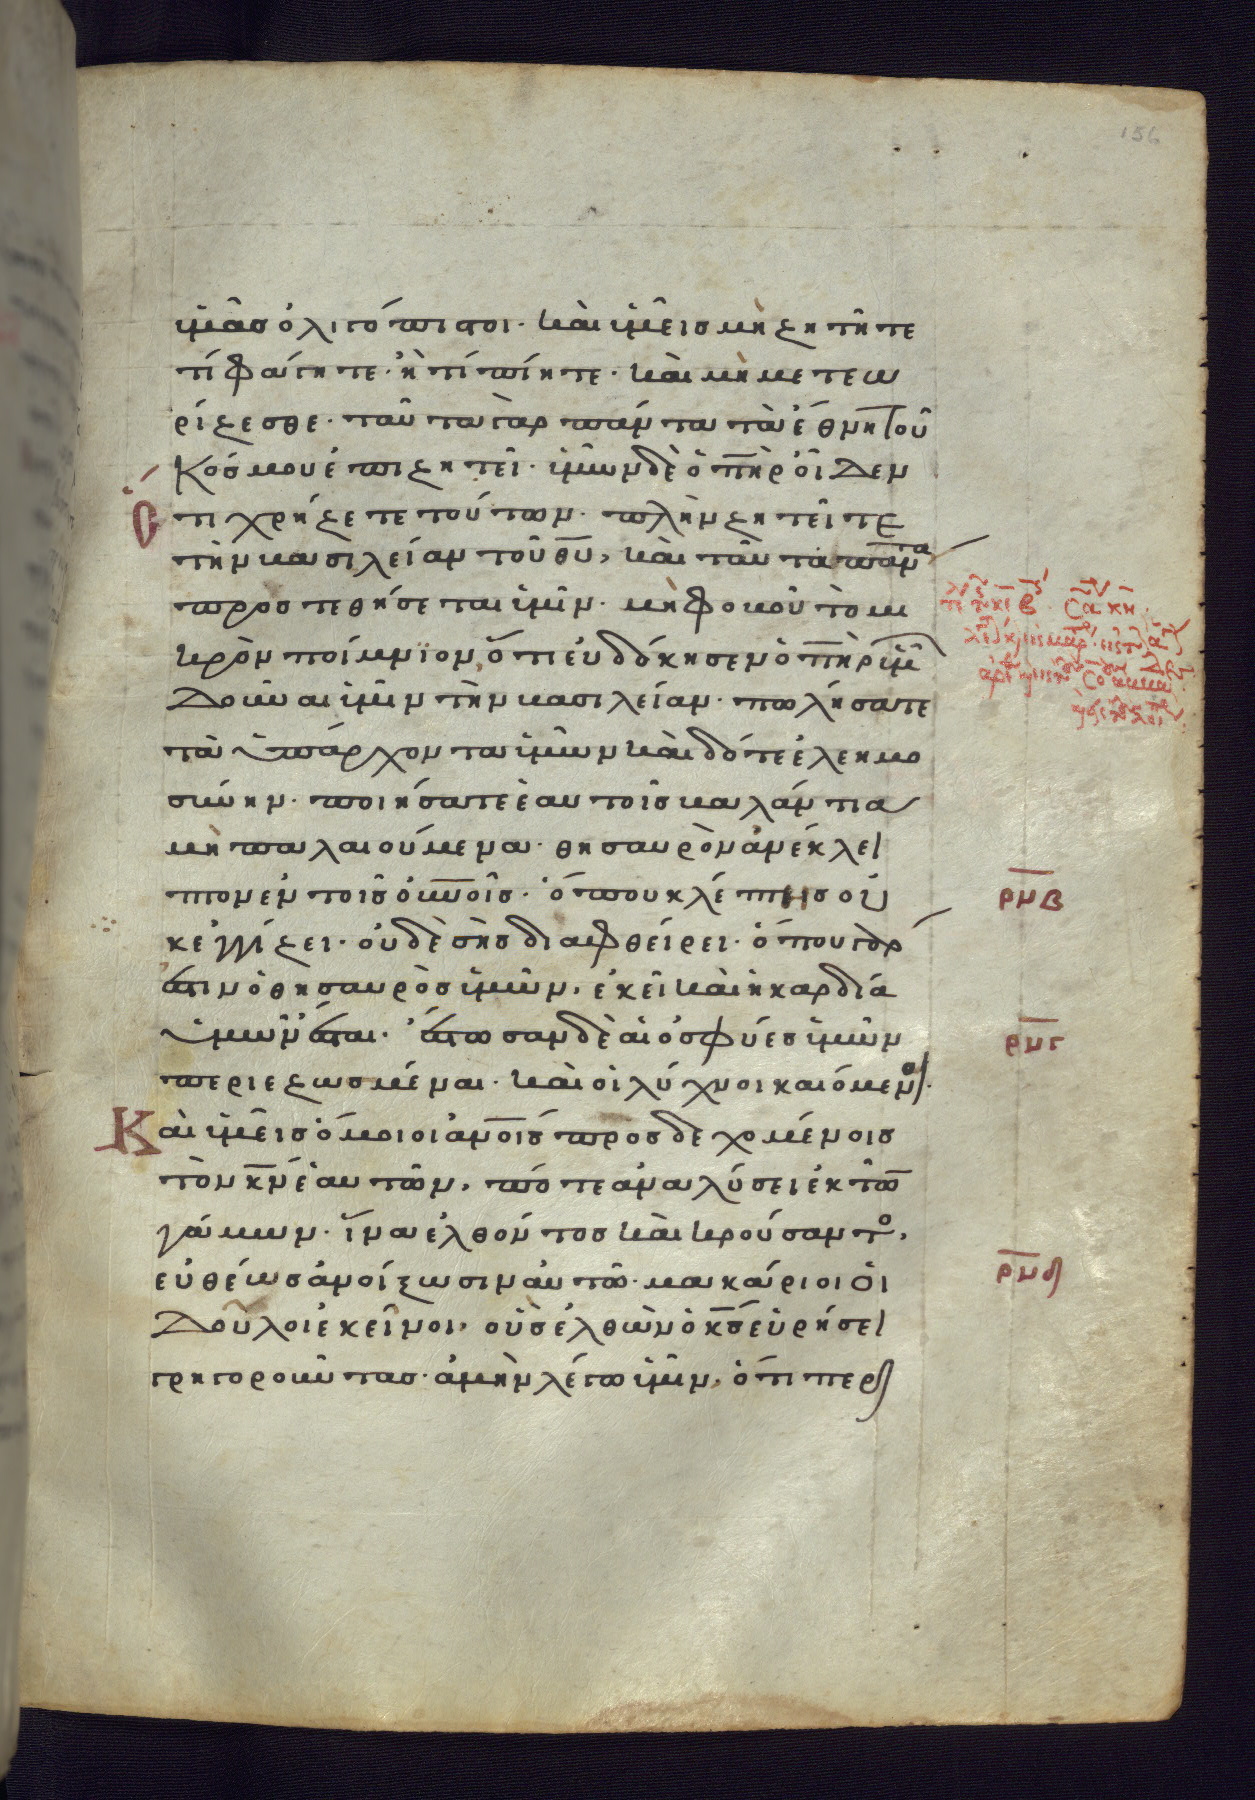 156
ὑμᾶσ ὀλιγόπιστοι· καὶ ὑμεῖσ μὴ ζητῆτε
τί φάγητε· ἢ τί πίητε· καὶ μὴ μετεω
ρίζεσθε· ταῦτα γὰρ πάντα τὰ ἔθνη τοῦ
Κόσμου ἐπιζητεῖ· ὑμῶν δὲ ὁ πηρ οἶδεν
ὅ
τι χρήζετε τούτων· πλὴν ζητεῖτε
τὴν βασιλείαν τοῦ θυ, καὶ ταῦτα πάντα
προστεθήσεται ὑμῖν· μὴ φοβοῦ τὸ μι
κρὸν ποίμνϊον, ὅτι εὐδόκησεν ὁ πηρ ὑμ
δοῦναι ὑμῖν τὴν βασιλείαν· πωλήσατε
τὰ ὑπάρχοντα ὑμῶν καὶ δότε ἐλεημο
σύνην· ποιήσατε ἑαυτοῖσ βαλάντια
μὴ παλαιούμενα· θησαυρὸν ἀνέκλει
πον ἐν τοῖσ οὐνοῖσ· ὅπου κλέπτησ οὐ
κ ἐγγίζει· οὐδὲ σὴσ διαφθείρει· ὅπου γάρ
ρμβ
ἐστιν ὁ θησαυρὸσ ὑμῶν, ἐκεῖ καὶ ἡ καρδία
ὑμῶν ἔσται· ἔστωσαν δὲ αἱ ὀσφύεσ ὑμῶν
ρμγ
περιεζωσμέναι· καὶ οἱ λύχνοι καιόμενοι·
Καὶ ὑμεῖσ ὅμοιοι ἀνοισ προσδεχομένοισ
τὸν κν ἑαυτῶν, πότε ἀναλύσει ἐκ τῶν
γάμων· ἵνα ἐλθόντοσ καὶ κρούσαντο,
εὐθέωσ ἀνοίξωσιν αὐτῶ· μακάριοι οἱ
ρμδ
δοῦλοι ἐκεῖνοι, οὓσ ἐλθὼν ὁ κσ εὑρήσει
γρηγοροῦντασ· ἀμὴν λέγω ὑμῖν, ὅτι περι